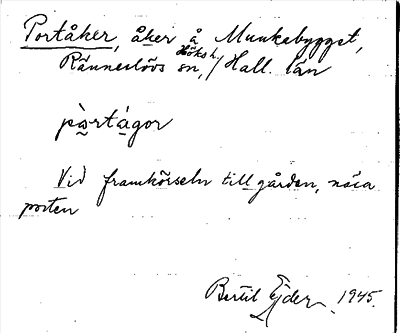 Portåker, åker å Munkabygget,
Ränneslövs sn, Höksh./Hall. län
pàrtágor
Vid framkörseln till gården, nära
porten
Bertil Ejder 1945.